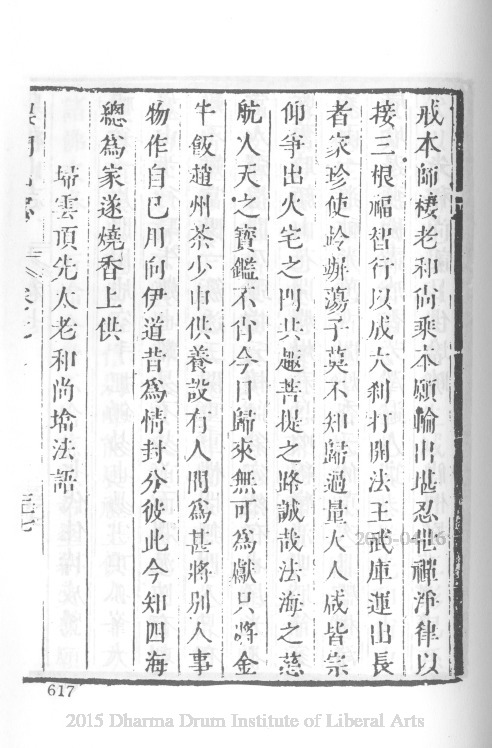 戒本師棲老和尚乘本願輪出堪忍世禪淨律以
接三根福智行以成大刹打開法王武庫運出長
者家珍使竛竮蕩子莫不知歸過量大人咸皆宗
仰爭出火宅之門共趨菩提之路誠哉法海之慈
航人天之寶鑑不肖今日歸來無可為獻只將金
牛飯趙州茶少申供養設有人問為甚將別人事
物作自己用向伊道昔為情封分彼此今知四海
總為家遂燒香上供
埽雲頂先太老和尚墖法語
617
2015 Dharma Drum Institute of Liberal Arts